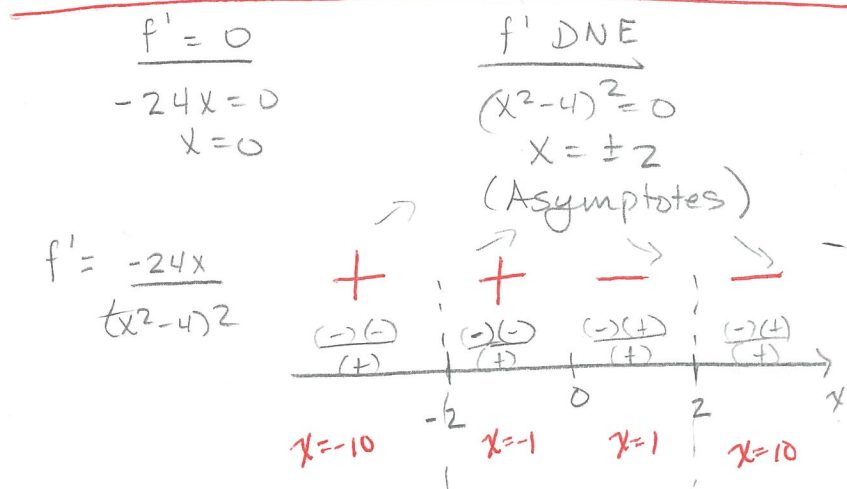 f' = 0
-24x = 0
x = 0
f' DNE
(x²-4)² = 0
x = ±2
(Asymptotes)
f' = -24x / (x²-4)²
+ + − −
(-)(-)/(+) (-)(-)/(+) (-)(+)/(+) (-)(+)/(+)
-2 0 2 x
x=-10 x=-1 x=1 x=10